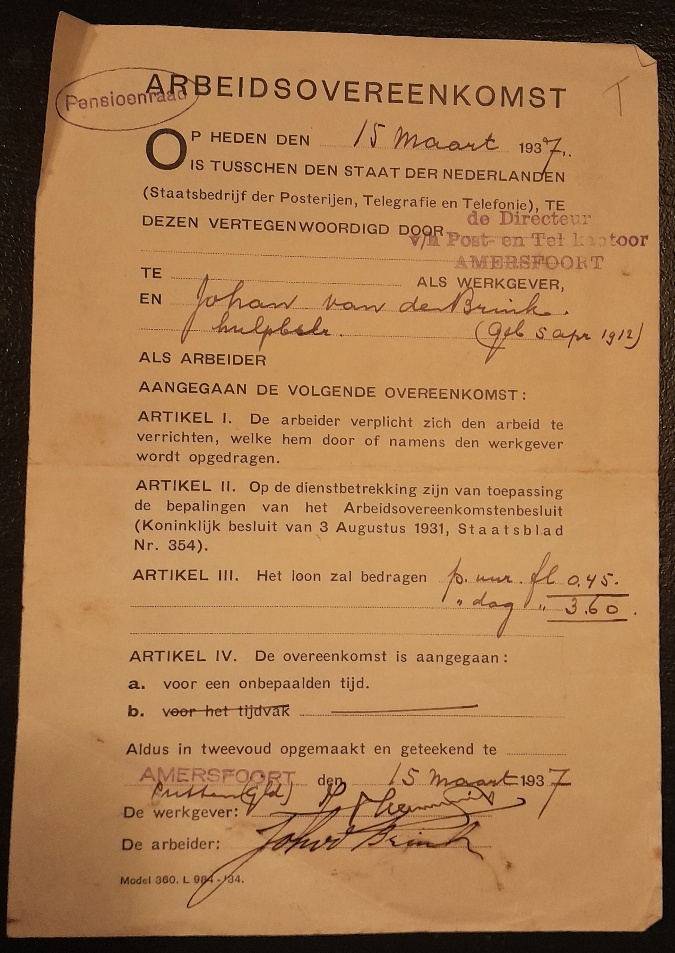 ARBEIDSOVEREENKOMST
Pensioenraad
T
OP HEDEN DEN 15 Maart 1937.
IS TUSSCHEN DEN STAAT DER NEDERLANDEN
(Staatsbedrijf der Posterijen, Telegrafie en Telefonie), TE
DEZEN VERTEGENWOORDIGD DOOR de Directeur
v/h Post- en Tel kantoor
AMERSFOORT
TE ALS WERKGEVER,
EN Johan van de Brink.
hulpbstr. (geb 5 apr 1912)
ALS ARBEIDER
AANGEGAAN DE VOLGENDE OVEREENKOMST:
ARTIKEL I. De arbeider verplicht zich den arbeid te
verrichten, welke hem door of namens den werkgever
wordt opgedragen.
ARTIKEL II. Op de dienstbetrekking zijn van toepassing
de bepalingen van het Arbeidsovereenkomstenbesluit
(Koninklijk besluit van 3 Augustus 1931, Staatsblad
Nr. 354).
ARTIKEL III. Het loon zal bedragen p. uur. fl 0.45.
" dag " 3.60.
ARTIKEL IV. De overeenkomst is aangegaan:
a. voor een onbepaalden tijd.
b. voor het tijdvak
Aldus in tweevoud opgemaakt en geteekend te
AMERSFOORT den 15 maart 1937
Putten (Gld)
De werkgever:
De arbeider: Joh vd Brink
Model 360. L 984-'34.